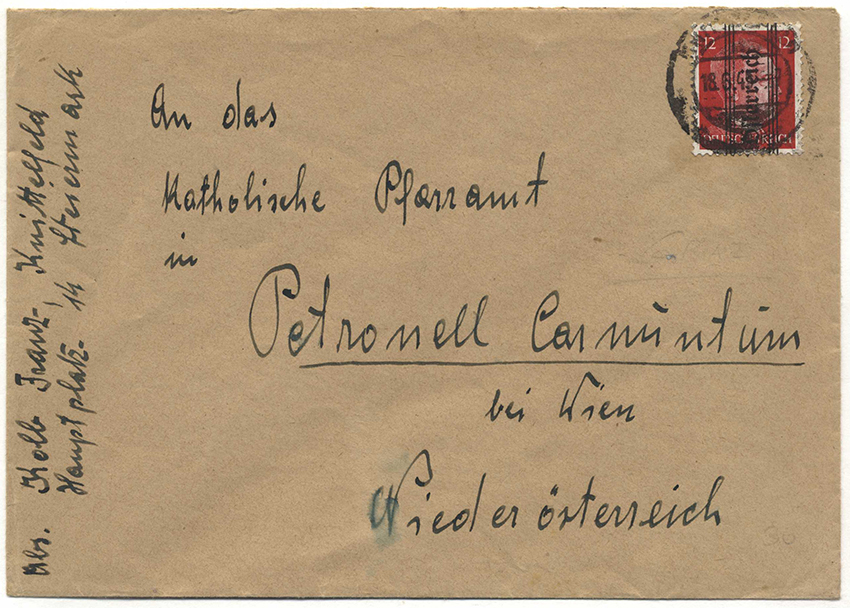 An das
Katholische Pfarramt
in
Petronell Carnuntum
bei Wien
Niederösterreich
Abs. Kolb Franz, Knittelfeld
Hauptplatz 14 Steiermark
12 12
Österreich
18.6.4
DEUTSCHES REICH